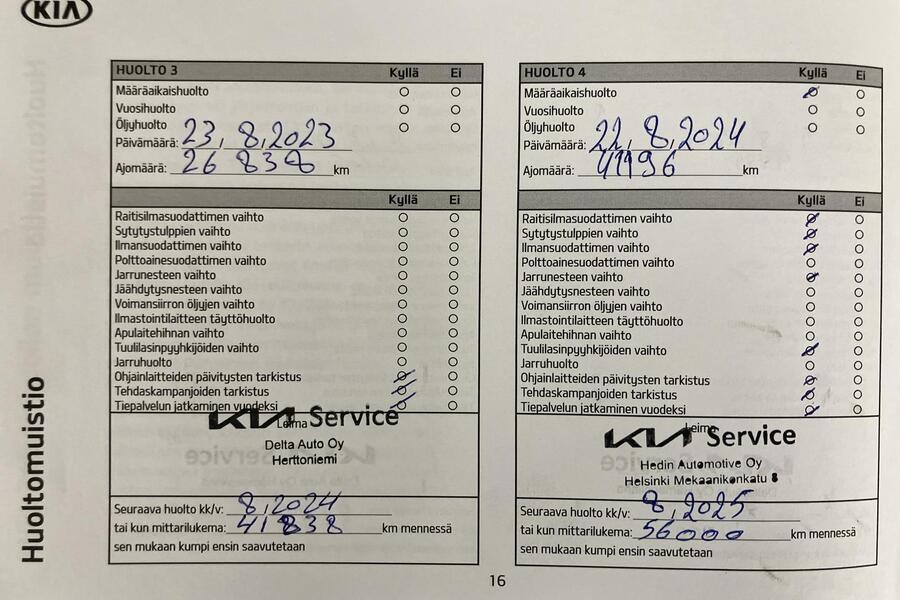 KIA
Huoltomuistio
HUOLTO 3 Kyllä Ei
Määräaikaishuolto
Vuosihuolto
Öljyhuolto
Päivämäärä: 23, 8,2023
Ajomäärä: 26 838 km
Kyllä Ei
Raitisilmasuodattimen vaihto
Sytytystulppien vaihto
Ilmansuodattimen vaihto
Polttoainesuodattimen vaihto
Jarrunesteen vaihto
Jäähdytysnesteen vaihto
Voimansiirron öljyjen vaihto
Ilmastointilaitteen täyttöhuolto
Apulaitehihnan vaihto
Tuulilasinpyyhkijöiden vaihto
Jarruhuolto
Ohjainlaitteiden päivitysten tarkistus
Tehdaskampanjoiden tarkistus
Tiepalvelun jatkaminen vuodeksi
Leima
KIA Service
Delta Auto Oy
Herttoniemi
Seuraava huolto kk/v: 8,2024
tai kun mittarilukema: 41838 km mennessä
sen mukaan kumpi ensin saavutetaan
HUOLTO 4 Kyllä Ei
Määräaikaishuolto
Vuosihuolto
Öljyhuolto
Päivämäärä: 22, 8,2024
Ajomäärä: 41196 km
Kyllä Ei
Raitisilmasuodattimen vaihto
Sytytystulppien vaihto
Ilmansuodattimen vaihto
Polttoainesuodattimen vaihto
Jarrunesteen vaihto
Jäähdytysnesteen vaihto
Voimansiirron öljyjen vaihto
Ilmastointilaitteen täyttöhuolto
Apulaitehihnan vaihto
Tuulilasinpyyhkijöiden vaihto
Jarruhuolto
Ohjainlaitteiden päivitysten tarkistus
Tehdaskampanjoiden tarkistus
Tiepalvelun jatkaminen vuodeksi
Leima
KIA Service
Hedin Automotive Oy
Helsinki Mekaanikonkatu 8
Seuraava huolto kk/v: 8,2025
tai kun mittarilukema: 56000 km mennessä
sen mukaan kumpi ensin saavutetaan
16